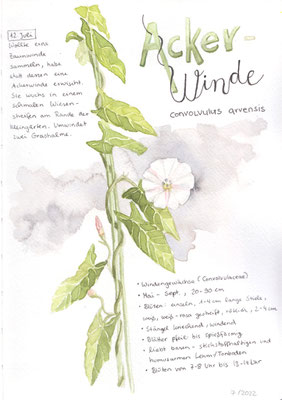 12. Juli
Wollte eine
Zaunwinde
sammeln, habe
statt dessen eine
Ackerwinde erwischt.
Sie wuchs in einem
schmalen Wiesen-
streifen am Rande der
Kleingärten. Umwindet
zwei Grashalme.
Acker-
Winde
convolvulus arvensis
• Windengewächse (Convolvulaceae)
• Mai - Sept., 20-80 cm
• Blüten: einzeln, 1-4 lange Stiele,
weiß, weiß-rosa gestreift, rötlich, 2-4 cm
• Stängel kriechend, windend
• Blätter pfeil- bis spießförmig
• liebt basen- stickstoffhaltigen und
humusarmen Lehm/Tonboden
• Blüten von 7-8 Uhr bis 13-14 Uhr
7/2022